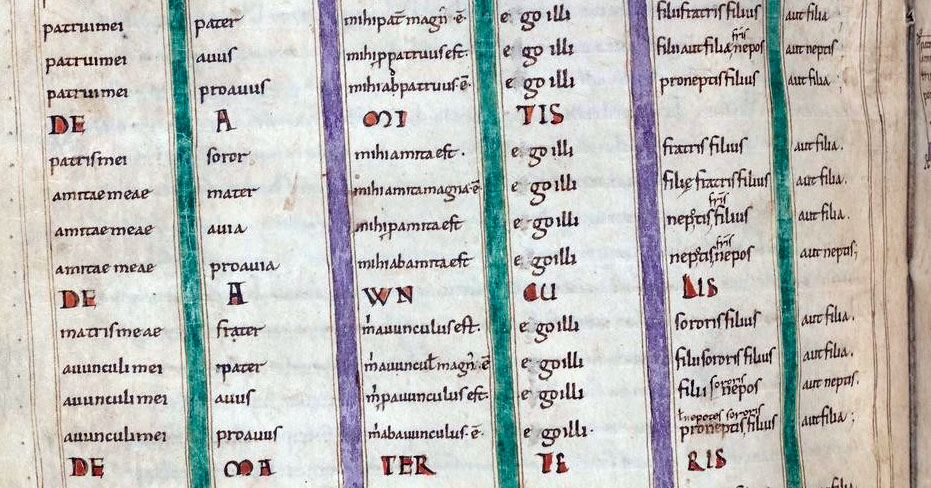 patruimei pater mihi pat̄ magn̄ ·ē· ego illi filii fratris filius aut filia
patruimei auus mihi ppatruus est. ego illi filii aut filiȩ fr̄is nepos aut neptis
patruimei proauus mihi abpatruus·ē· ego illi proneptis filius aut filia
DE A MI TIS
patris mei soror mihi amita est. ego illi fratris filius aut filia.
amitae meae mater mihi amita magna·ē ego illi filiȩ fratris filius aut filia.
amitae meae auia mihi pamita est ego illi neptis fr̄is filius aut filia.
amitae meae proauia mihi abamita est ego illi neptis fr̄is nepos aut neptis;
DE A WN CU LIS
matris meae frater m̍ auunculus est. ego illi sororis filius aut filia.
auunculi mei pater m̍ auuncul̄ magn̄·ē ego illi filii sororis filius aut filia.
auunculi mei auus m̍ pauunculus est. ego illi filii sororis nepos aut neptis.
auunculi mei proauus m̍ abauunculus·ē· ego illi· ł nepotes sororis proneptis filius aut filia;
DE MA TER TE RIS